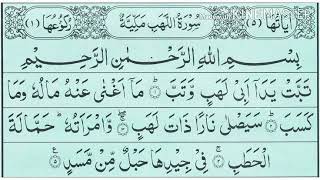 اٰيَاتُهَا (٥) سُوْرَةُ اللَّهَبِ مَكِّيَّةٌ رُكُوْعُهَا (١)
بِسْمِ اللّٰهِ الرَّحْمٰنِ الرَّحِيْمِ
تَبَّتْ يَدَاۤ اَبِیْ لَهَبٍ وَّتَبَّ ۝١ مَاۤ اَغْنٰى عَنْهُ مَالُهٗ وَمَا
كَسَبَ ۝٢ سَيَصْلٰى نَارًا ذَاتَ لَهَبٍ ۝٣ وَّامْرَاَتُهٗ ؕ حَمَّالَةَ
الْحَطَبِ ۝٤ فِیْ جِيْدِهَا حَبْلٌ مِّنْ مَّسَدٍ ۝٥